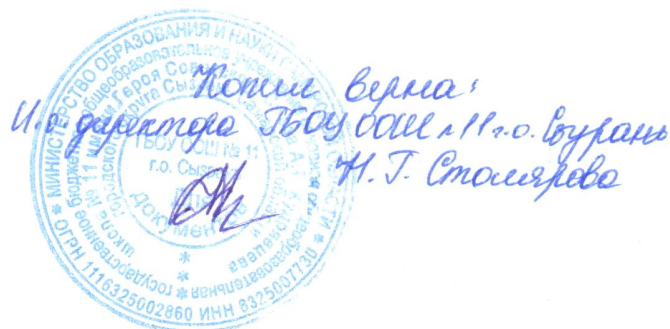 Копия верна:
И.о директора ГБОУ ООШ №11 г.о. Сызрань
Н. Г. Столярова
МИНИСТЕРСТВО ОБРАЗОВАНИЯ И НАУКИ
ОГРН 1116325002860 ИНН 6325007730
государственное бюджетное общеобразовательное
школа № 11 имени Героя
ГБОУ ООШ № 11
г.о. Сызрань